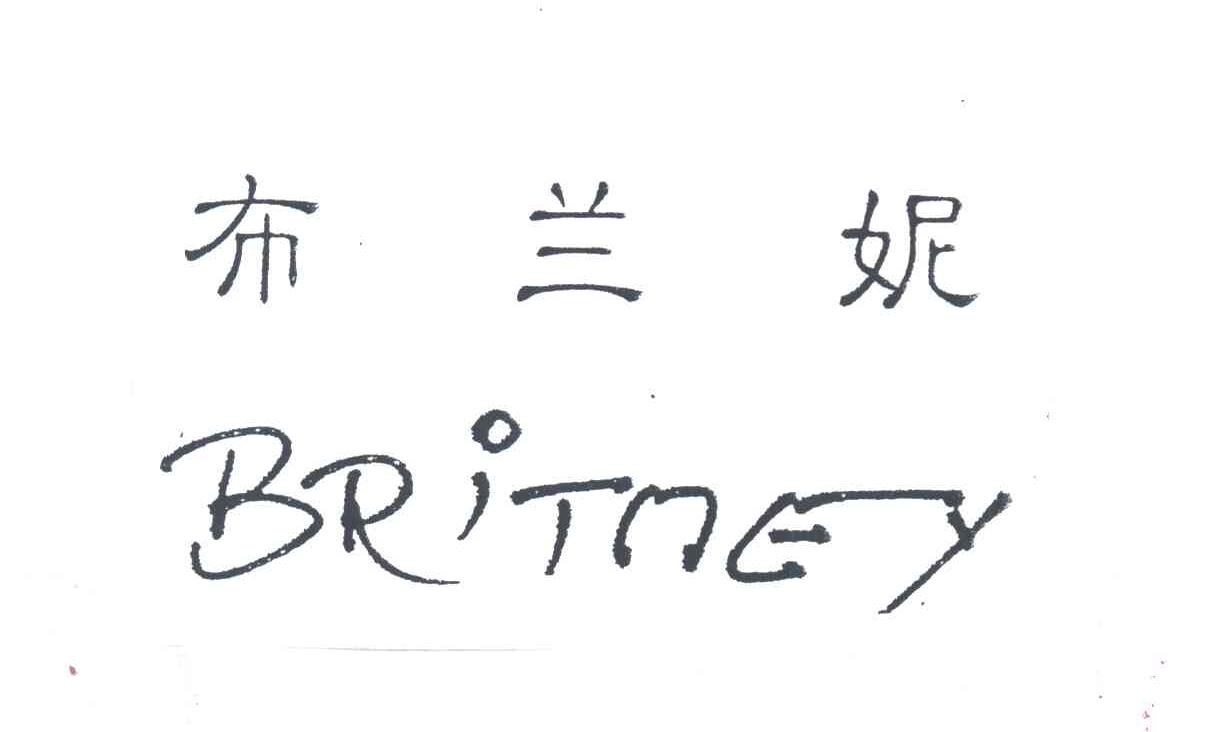 布兰妮
BRiTNEY